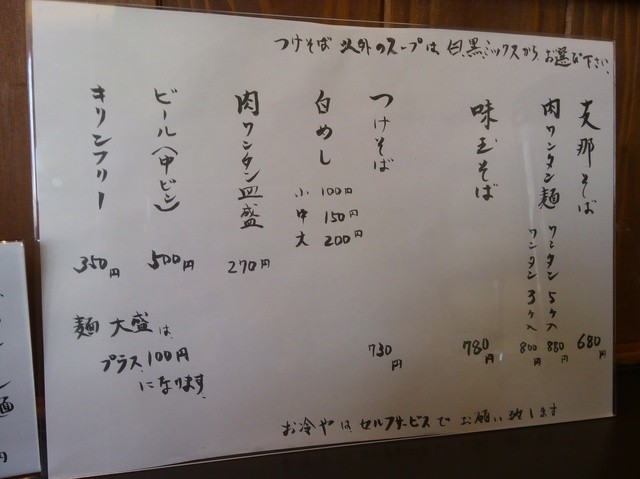 つけそば以外のスープは、白、黒、ミックスから、お選び下さい。
支那そば 680円
肉ワンタン麺 ワンタン5ヶ入 880円
ワンタン3ヶ入 800円
味玉そば 780円
つけそば 730円
白めし
小 100円
中 150円
大 200円
肉ワンタン皿盛 270円
ビール(中ビン) 500円
キリンフリー 350円
麺 大盛は、
プラス100円
になります。
お冷やはセルフサービスでお願い致します
麺
円